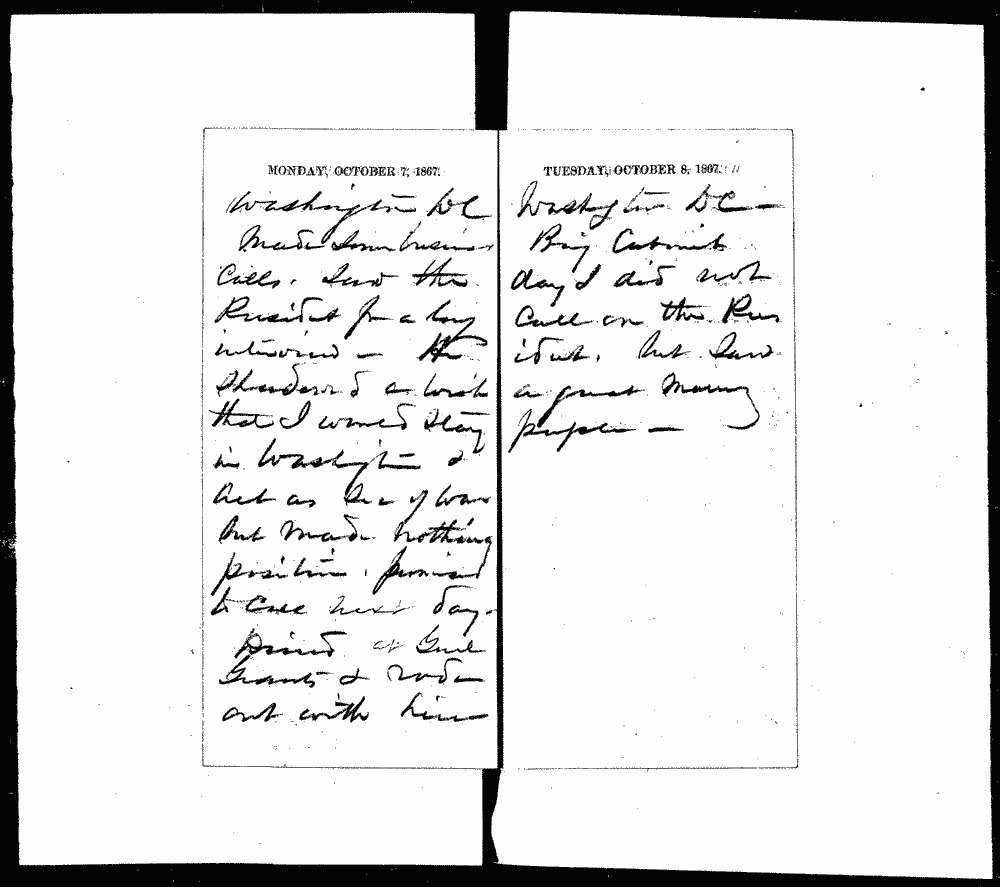 MONDAY, OCTOBER 7, 1867.
Washington DC
Made some business
Calls. Saw the
President for a long
interview — He
shadowed a wish
that I would stay
in Washington &
Act as Sec of War
but made nothing
positive. promised
to Call next day-
Dined at Genl
Grants & rode
out with him
TUESDAY, OCTOBER 8, 1867.
Washington DC —
Being Cabinet
day I did not
Call on the Pres
ident. but saw
a great many
people —